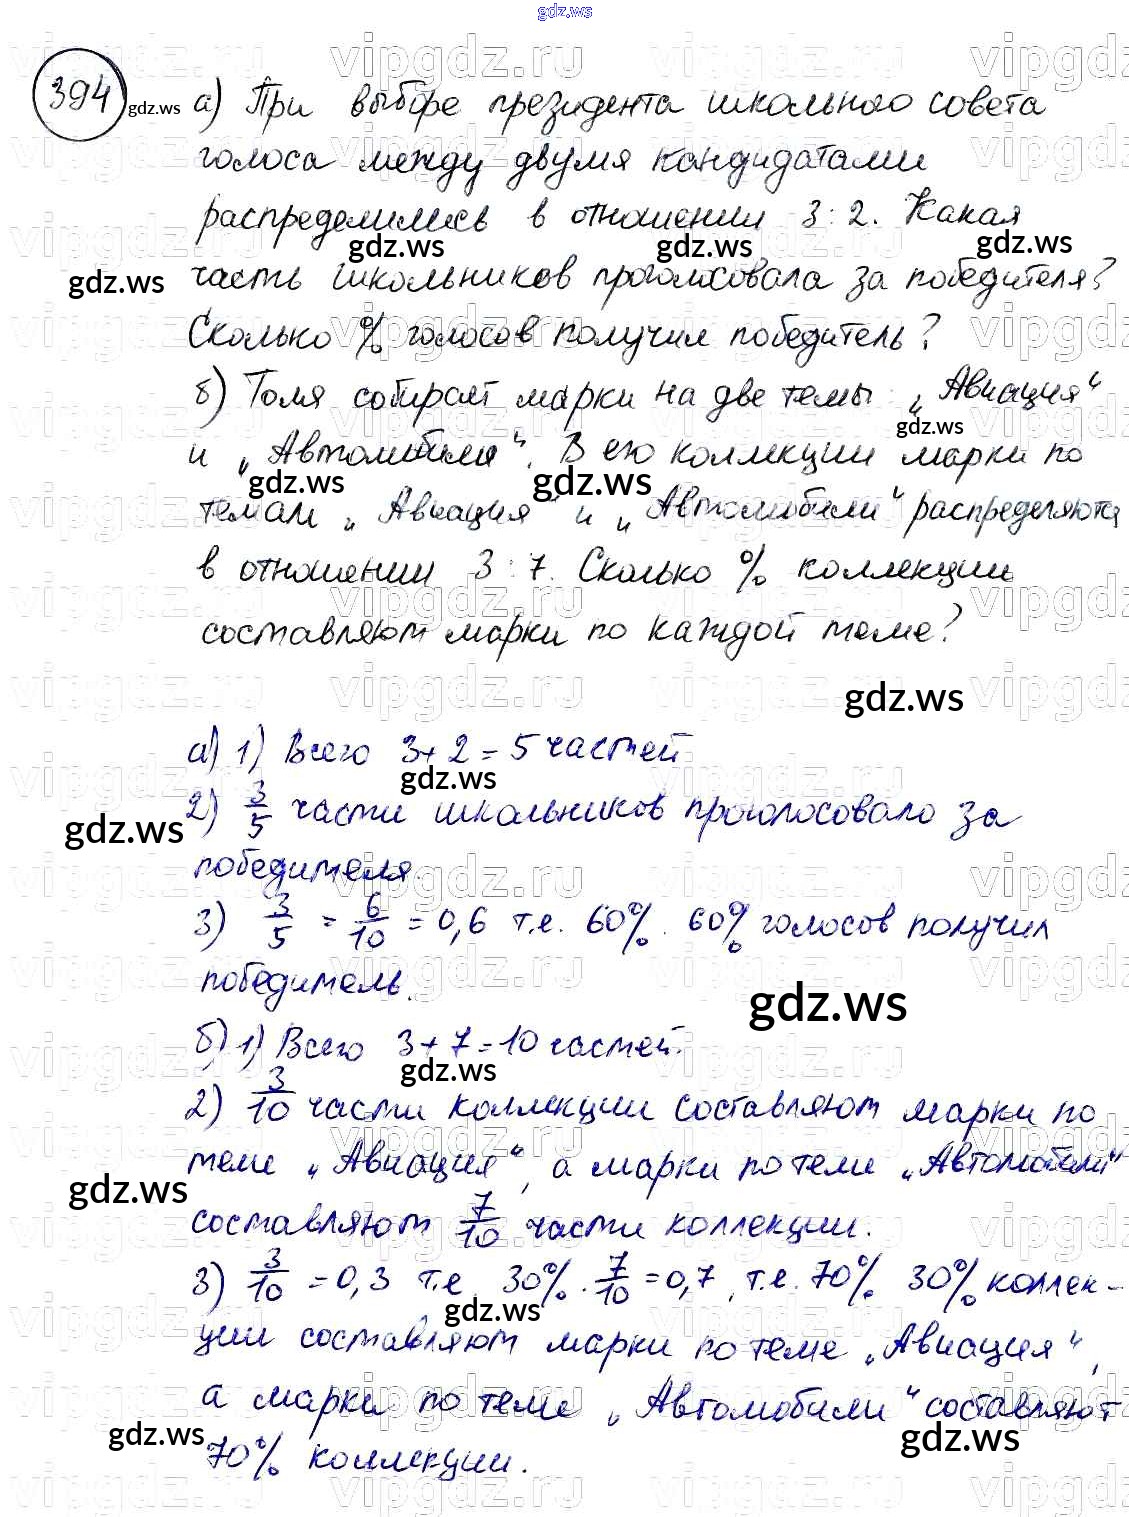 gdz.ws
394 gdz.ws а) При выборе президента школьного совета
голоса между двумя кандидатами
распределились в отношении 3:2. Какая
gdz.ws gdz.ws gdz.ws
gdz.ws часть школьников проголосовала за победителя?
Сколько % голосов получил победитель?
б) Толя собирает марки на две темы: „Авиация“
gdz.ws
и „Автомобили“. В его коллекции марки по
gdz.ws gdz.ws
темам „Авиация“ и „Автомобили“ распределяются
в отношении 3:7. Сколько % коллекции
составляют марки по каждой теме?
vipgdz.ru vipgdz.ru vipgdz.ru vipgdz.ru
gdz.ws
а) 1) Всего 3+2=5 частей
gdz.ws
2) 3/5 части школьников проголосовало за
gdz.ws
победителя.
3) 3/5 = 6/10 = 0,6 т.е. 60%. 60% голосов получил
победитель.
gdz.ws
б) 1) Всего 3+7=10 частей.
gdz.ws
2) 3/10 части коллекции составляют марки по
теме „Авиация“, а марки по теме „Автомобили“
gdz.ws
составляют 7/10 части коллекции.
3) 3/10 = 0,3 т.е 30%. 7/10 = 0,7, т.е. 70% 30% коллек-
gdz.ws
ции составляют марки по теме „Авиация“,
а марки по теме „Автомобили“ составляют
gdz.ws gdz.ws
70% коллекции.